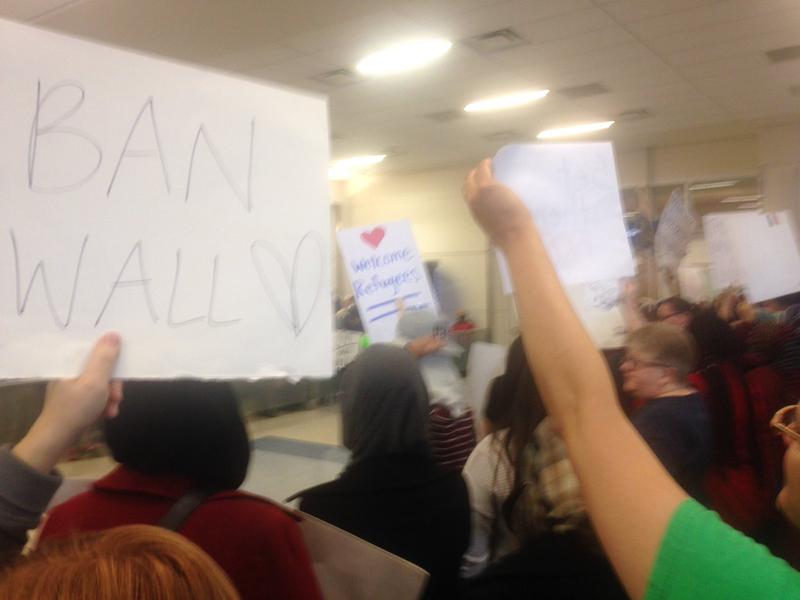 BAN
WALL
Welcome
Refugees